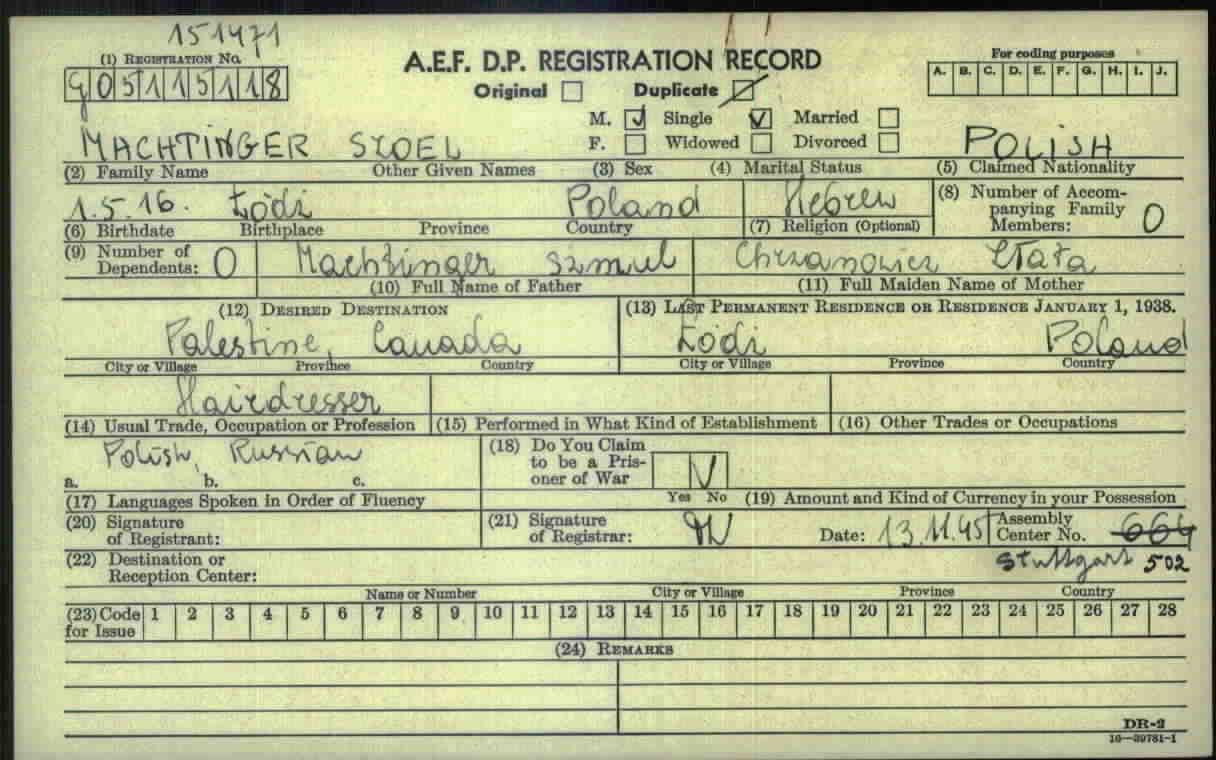 151471
(1) REGISTRATION No.
G05115118
A.E.F. D.P. REGISTRATION RECORD
Original Duplicate
For coding purposes
A. B. C. D. E. F. G. H. I. J.
M. Single Married
F. Widowed Divorced
MACHTINGER SZOEL POLISH
(2) Family Name Other Given Names (3) Sex (4) Marital Status (5) Claimed Nationality
1.5.16. Łódź Poland Hebrew
(6) Birthdate Birthplace Province Country (7) Religion (Optional)
(8) Number of Accom-
panying Family
Members: 0
(9) Number of
Dependents: 0
Machtinger Szmul Chrzanowicz Złata
(10) Full Name of Father (11) Full Maiden Name of Mother
(12) DESIRED DESTINATION (13) LAST PERMANENT RESIDENCE OR RESIDENCE JANUARY 1, 1938.
Palestine, Canada Łódź Poland
City or Village Province Country City or Village Province Country
Hairdresser
(14) Usual Trade, Occupation or Profession (15) Performed in What Kind of Establishment (16) Other Trades or Occupations
Polish, Russian
a. b. c.
(17) Languages Spoken in Order of Fluency
(18) Do You Claim
to be a Pris-
oner of War
Yes No (19) Amount and Kind of Currency in your Possession
(20) Signature
of Registrant:
(21) Signature
of Registrar:
Date: 13.11.45 Assembly
Center No. 664
Stuttgart 502
(22) Destination or
Reception Center:
Name or Number City or Village Province Country
(23) Code
for Issue
1 2 3 4 5 6 7 8 9 10 11 12 13 14 15 16 17 18 19 20 21 22 23 24 25 26 27 28
(24) REMARKS
DR-2
16—39781-1